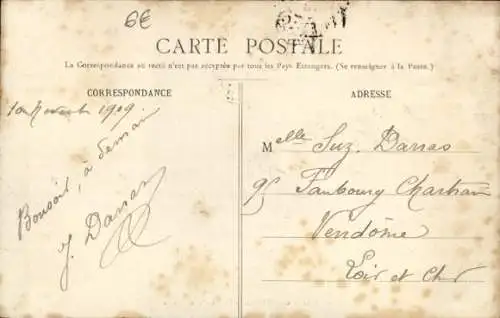 6€
CARTE POSTALE
La Correspondance au recto n'est pas acceptée par tous les Pays Etrangers. (Se renseigner à la Poste.)
CORRESPONDANCE
10 Novembre 1909
Bonsoir, à demain
J. Darras
ADRESSE
Melle Suz. Darras
95 Faubourg Chartrain
Vendôme
Loir et Cher